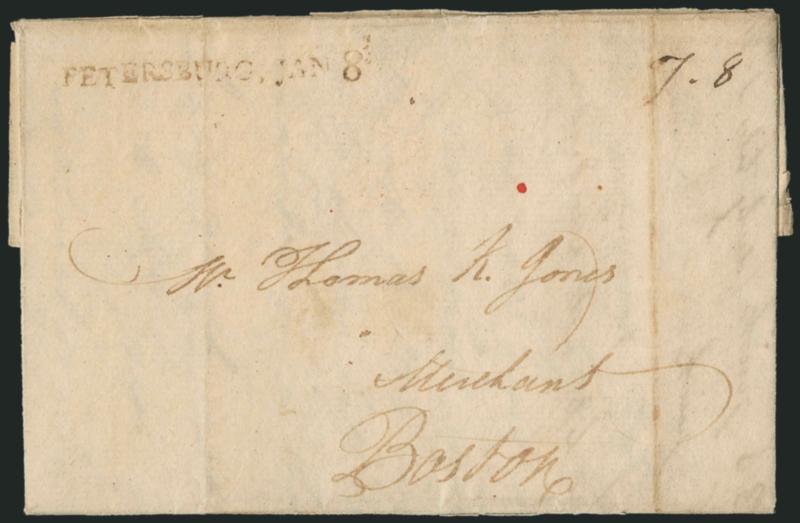 PETERSBURG, JAN 8
7.8
Mr. Thomas K. Jones
Merchant
Boston